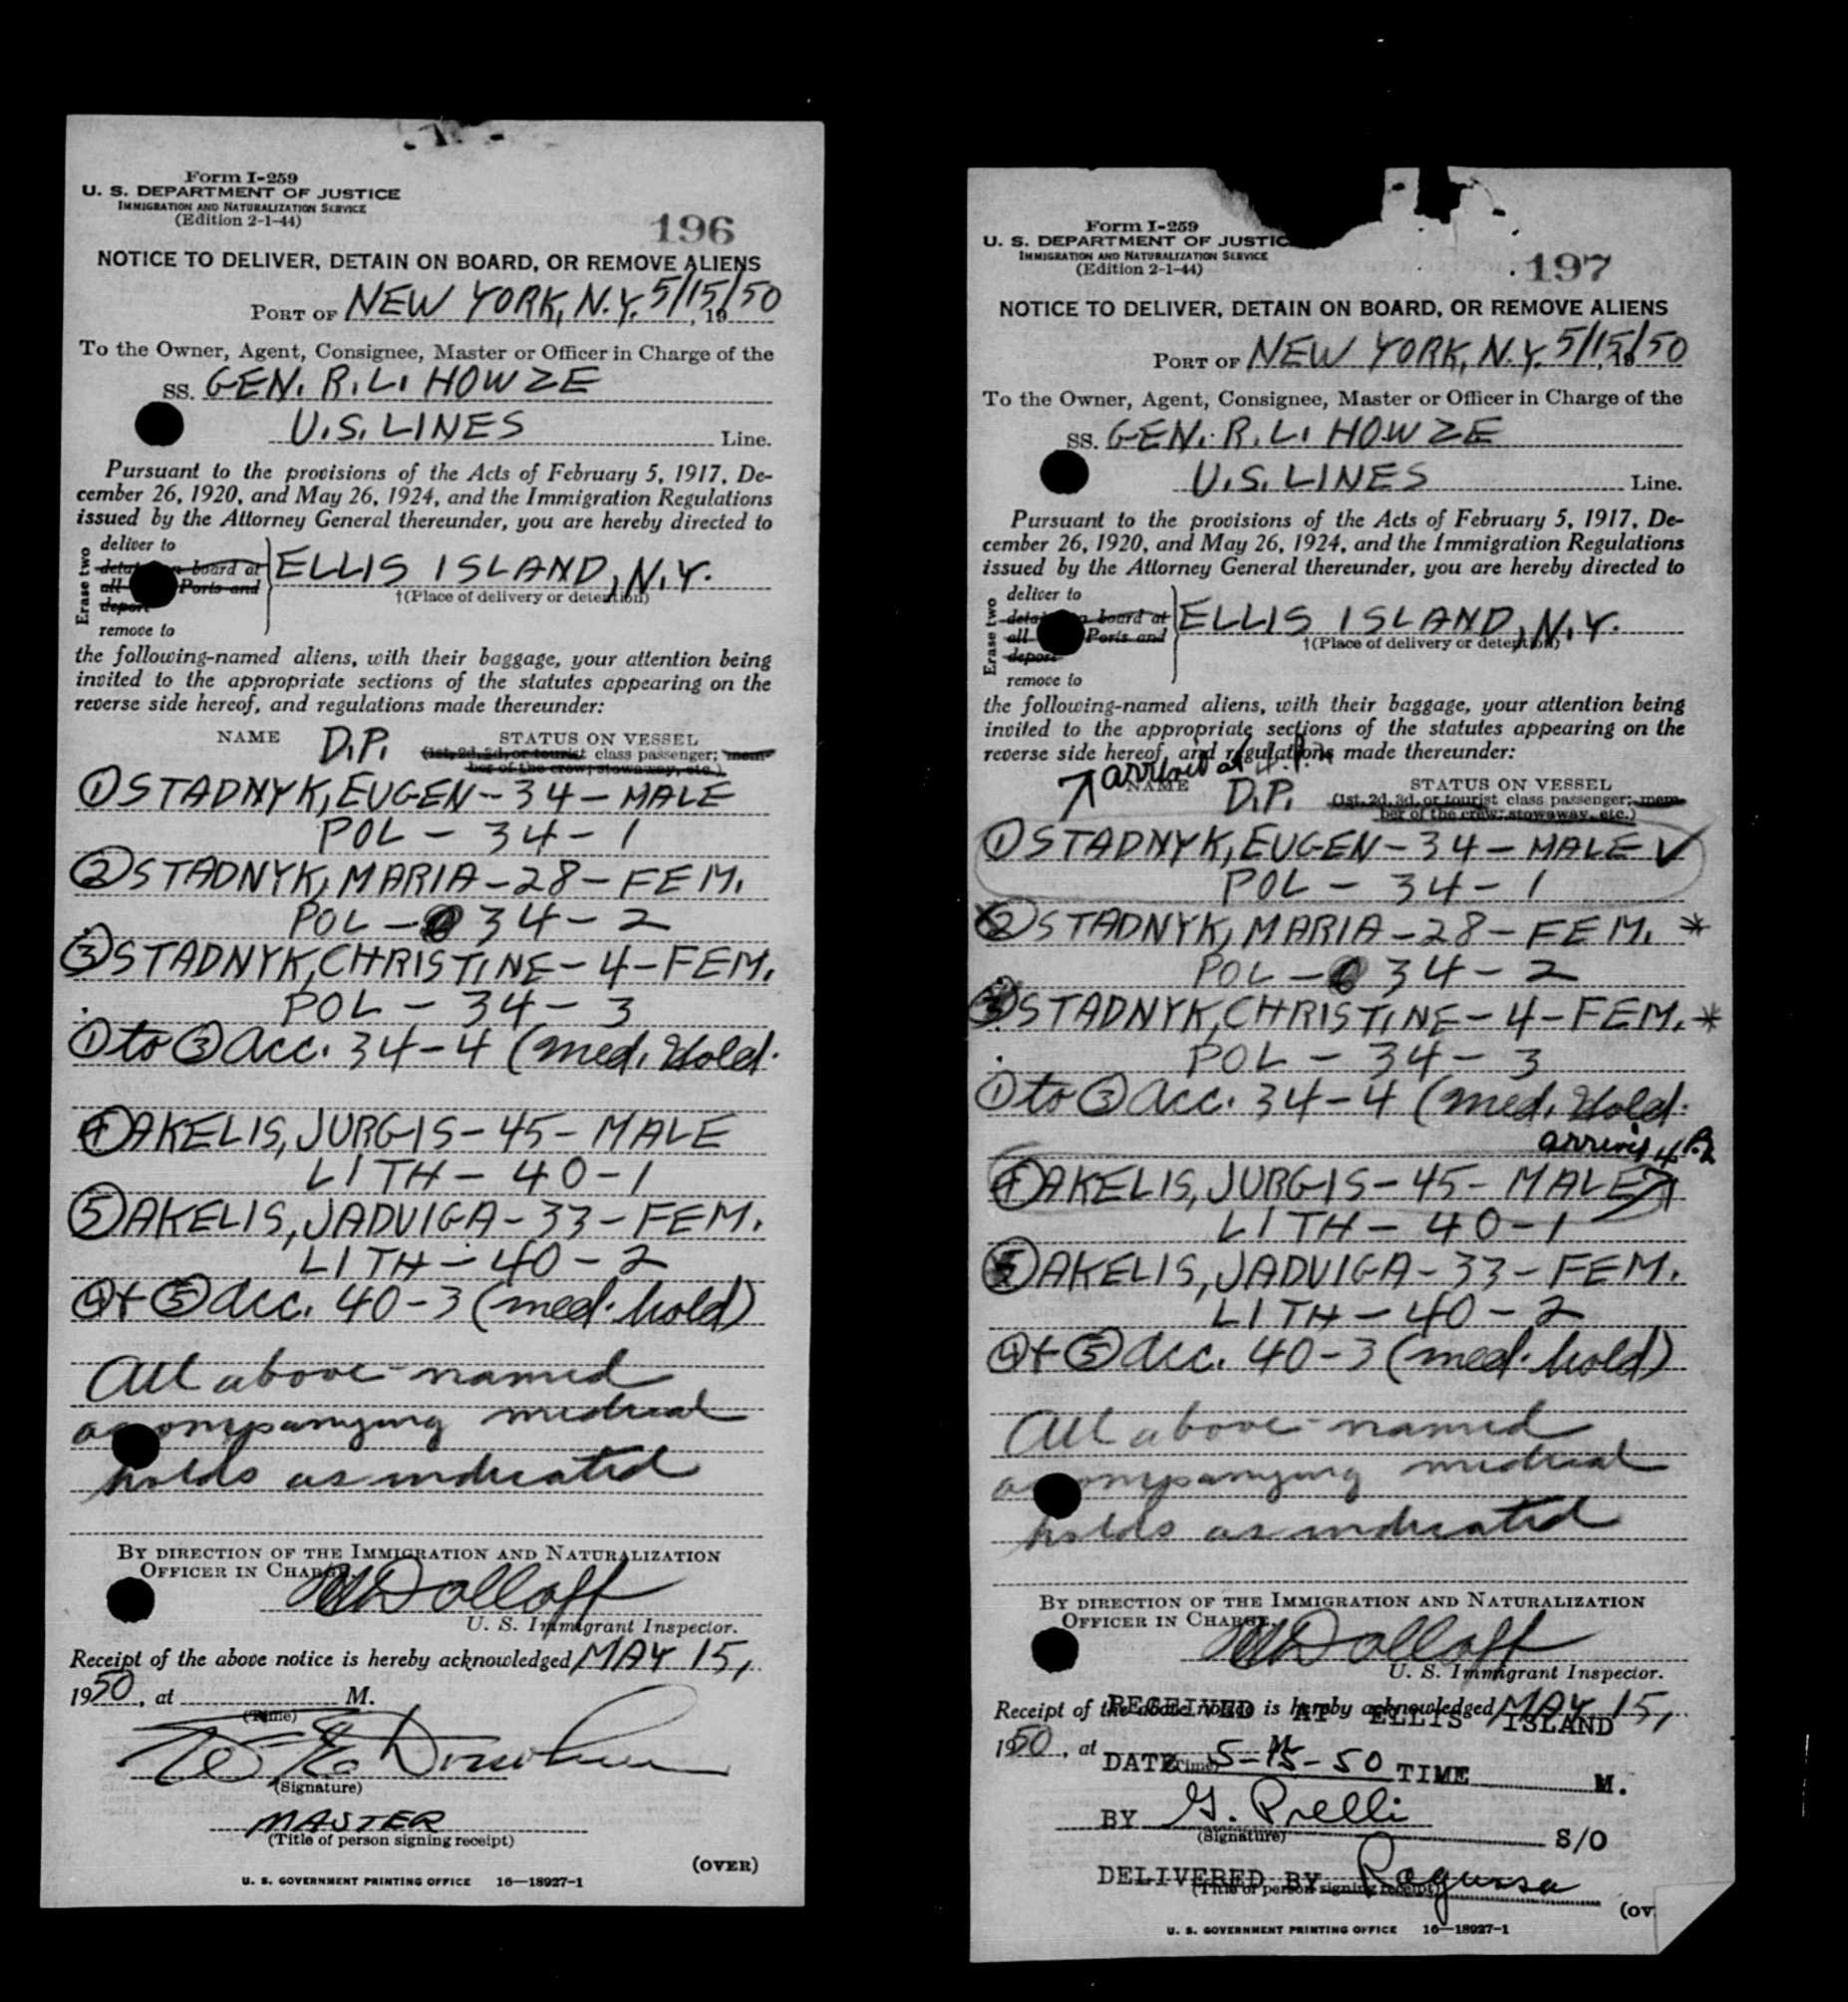 Form I-259
U. S. DEPARTMENT OF JUSTICE
IMMIGRATION AND NATURALIZATION SERVICE
(Edition 2-1-44)
196
NOTICE TO DELIVER, DETAIN ON BOARD, OR REMOVE ALIENS
PORT OF NEW YORK, N.Y. 5/15/50, 19
To the Owner, Agent, Consignee, Master or Officer in Charge of the
SS. GEN. R.L. HOWZE
U.S. LINES Line.
Pursuant to the provisions of the Acts of February 5, 1917, De-
cember 26, 1920, and May 26, 1924, and the Immigration Regulations
issued by the Attorney General thereunder, you are hereby directed to
Erase two
deliver to
board at
all Ports and
deport
remove to
ELLIS ISLAND, N.Y.
†(Place of delivery or detention)
the following-named aliens, with their baggage, your attention being
invited to the appropriate sections of the statutes appearing on the
reverse side hereof, and regulations made thereunder:
NAME D.P. STATUS ON VESSEL
(1st, 2d, 3d, or tourist class passenger; mem-
ber of the crew; stowaway, etc.)
① STADNYK, EUGEN - 34 - MALE
POL - 34 - 1
② STADNYK, MARIA - 28 - FEM.
POL - 34 - 2
③ STADNYK, CHRISTINE - 4 - FEM.
POL - 34 - 3
① to ③ acc. 34-4 (med. Hold.
④ AKELIS, JURGIS - 45 - MALE
LITH - 40 - 1
⑤ AKELIS, JADVIGA - 33 - FEM.
LITH - 40 - 2
④ + ⑤ acc. 40-3 (med. hold)
All above-named
accompanying medical
holds as indicated
BY DIRECTION OF THE IMMIGRATION AND NATURALIZATION
OFFICER IN CHARGE.
Dolloff
U. S. Immigrant Inspector.
Receipt of the above notice is hereby acknowledged MAY 15,
1950, at M.
(Time)
(Signature)
MASTER
(Title of person signing receipt)
(OVER)
U. S. GOVERNMENT PRINTING OFFICE 16—18927-1
Form I-259
U. S. DEPARTMENT OF JUSTIC
IMMIGRATION AND NATURALIZATION SERVICE
(Edition 2-1-44)
197
NOTICE TO DELIVER, DETAIN ON BOARD, OR REMOVE ALIENS
PORT OF NEW YORK, N.Y. 5/15/50, 19
To the Owner, Agent, Consignee, Master or Officer in Charge of the
SS. GEN. R.L. HOWZE
U.S. LINES Line.
Pursuant to the provisions of the Acts of February 5, 1917, De-
cember 26, 1920, and May 26, 1924, and the Immigration Regulations
issued by the Attorney General thereunder, you are hereby directed to
Erase two
deliver to
board at
all Ports and
deport
remove to
ELLIS ISLAND, N.Y.
†(Place of delivery or detention)
the following-named aliens, with their baggage, your attention being
invited to the appropriate sections of the statutes appearing on the
reverse side hereof, and regulations made thereunder:
arrived at
NAME D.P. STATUS ON VESSEL
(1st, 2d, 3d, or tourist class passenger; mem-
ber of the crew; stowaway, etc.)
① STADNYK, EUGEN - 34 - MALE ✓
POL - 34 - 1
② STADNYK, MARIA - 28 - FEM. *
POL - 34 - 2
③ STADNYK, CHRISTINE - 4 - FEM. *
POL - 34 - 3
① to ③ acc. 34-4 (med. Hold.
④ AKELIS, JURGIS - 45 - MALE
LITH - 40 - 1
⑤ AKELIS, JADVIGA - 33 - FEM.
LITH - 40 - 2
④ + ⑤ acc. 40-3 (med. hold)
All above-named
accompanying medical
holds as indicated
BY DIRECTION OF THE IMMIGRATION AND NATURALIZATION
OFFICER IN CHARGE.
Dolloff
U. S. Immigrant Inspector.
Receipt of the above notice is hereby acknowledged MAY 15,
RECEIVED AT ELLIS ISLAND
1950, at
DATE 5-15-50 TIME M.
(Time)
BY G. Prelli S/O
(Signature)
DELIVERED BY Ragursa
(Title of person signing receipt)
(OV
U. S. GOVERNMENT PRINTING OFFICE 16—18927-1